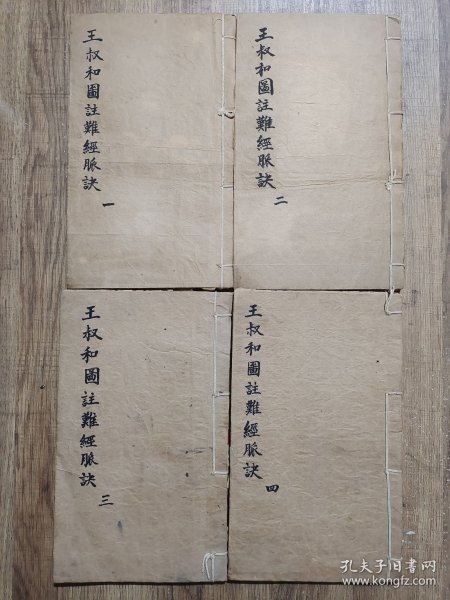 王叔和圖註難經脈訣
一
王叔和圖註難經脈訣
二
王叔和圖註難經脈訣
三
王叔和圖註難經脈訣
四
孔夫子旧书网
www.kongfz.com